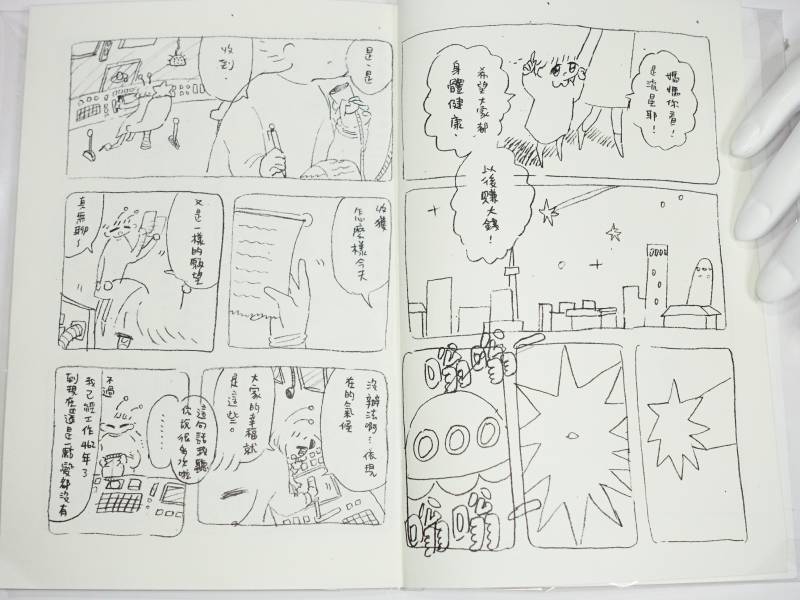 媽媽你看!
是流星耶!
希望大家都
身體健康.
以後賺大錢!
是、是
收到.
怎麼樣今天
收獲
又是一樣的願望
真無聊~
沒辦法啊…依現
在的氣候
大家的幸福就
是這些。
這句話我聽
你說很多次啦
………
不過
我已經工作462年了
到現在還是一點愛都沒有